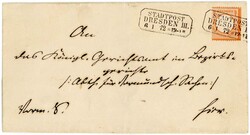 STADTPOST
DRESDEN III.
6 1 72
STADTPOST
DRESDEN III.
6 1 72
An
das Königl. Gerichtsamt im Bezirks-
gerichte
/: Abth. für Vormundsch. Sachen :/
hier.